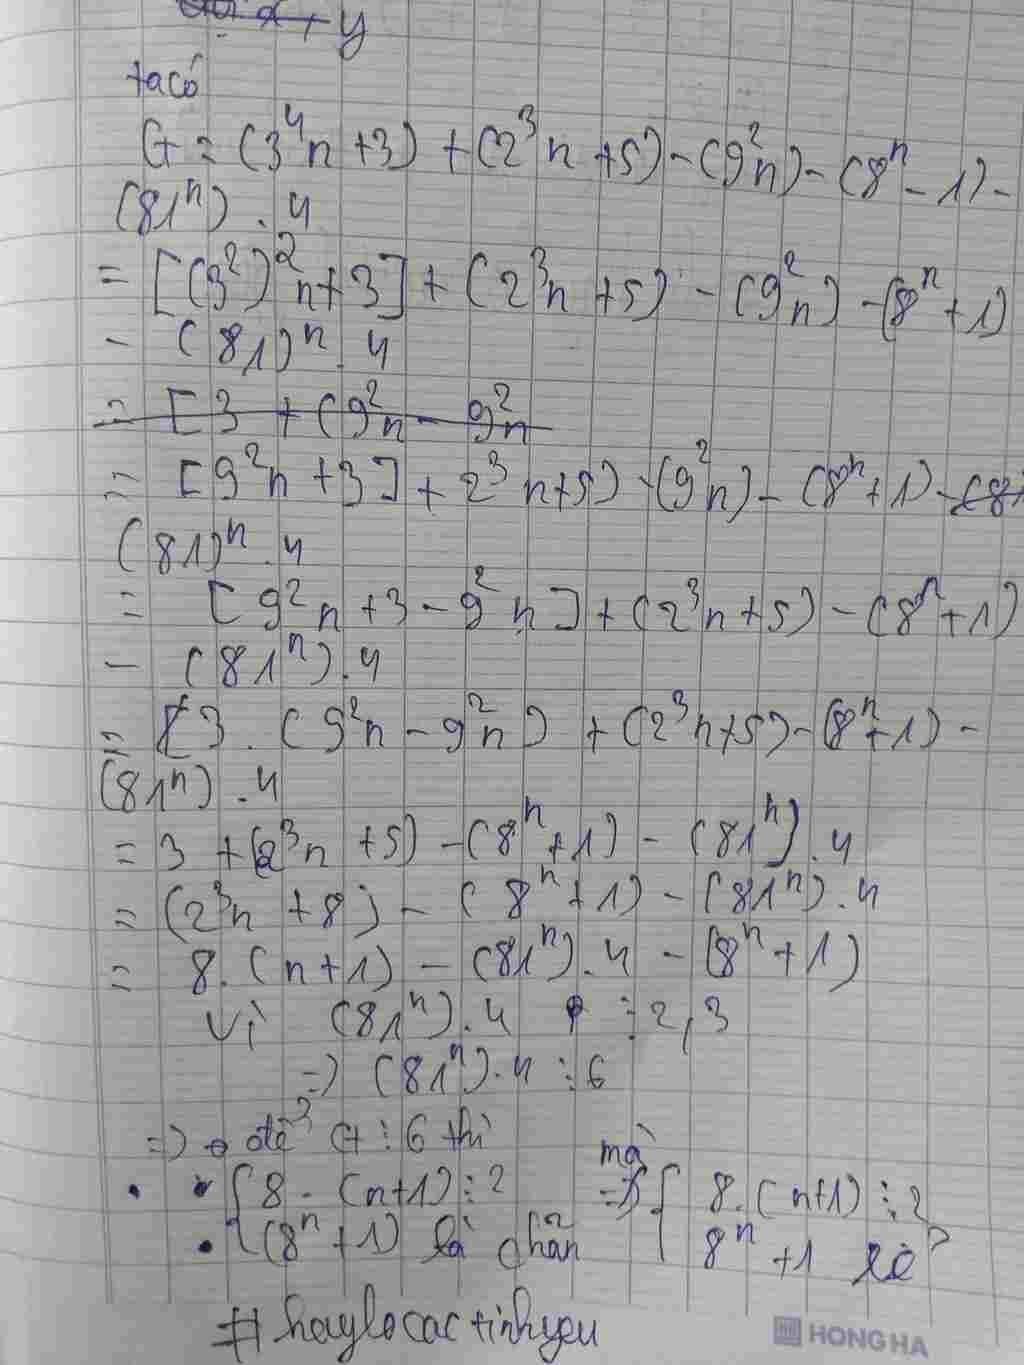 x + y
ta có
G = (3⁴n + 3) + (2³n + 5) - (9²n) - (8ⁿ - 1) -
(81ⁿ) . 4
= [(3²)²n + 3] + (2³n + 5) - (9²n) - (8ⁿ + 1)
- (81)ⁿ . 4
= [3 + (9²n - 9²n
= [9²n + 3] + 2³n + 5) - (9²n) - (8ⁿ + 1) - (81
(81)ⁿ . 4
= [9²n + 3 - 9²n] + (2³n + 5) - (8ⁿ + 1)
- (81ⁿ) . 4
= [3 . (9²n - 9²n) + (2³n + 5) - (8ⁿ + 1) -
(81ⁿ) . 4
= 3 + (2³n + 5) - (8ⁿ + 1) - (81ⁿ) . 4
= (2³n + 8) - (8ⁿ + 1) - (81ⁿ) . 4
= 8 . (n + 1) - (81ⁿ) . 4 - (8ⁿ + 1)
Vì (81ⁿ) . 4 ⋮ 2, 3
=> (81ⁿ) . 4 ⋮ 6
=> để G ⋮ 6 thì
{ 8 . (n+1) ⋮ 2 mà => { 8 . (n+1) ⋮ 2
(8ⁿ + 1) là chẵn 8ⁿ + 1 lẻ
#haylocactinhyeu
HONG HA